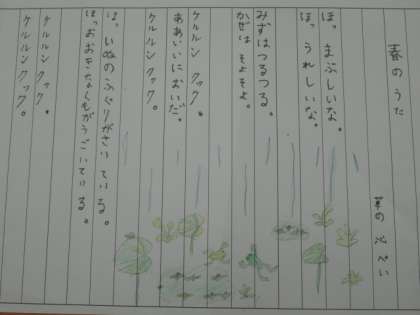 春のうた
草の 心ぺい
ほっ まぶしいな。
ほっ うれしいな。
みずはつるつる。
かぜは そよそよ。
ケルルン クック。
ああいいにおいだ。
ケルルン クック。
ほっ いぬのふぐりがさいている。
ほっ おおきなくもがうごいている。
ケルルン クック。
ケルルン クック。